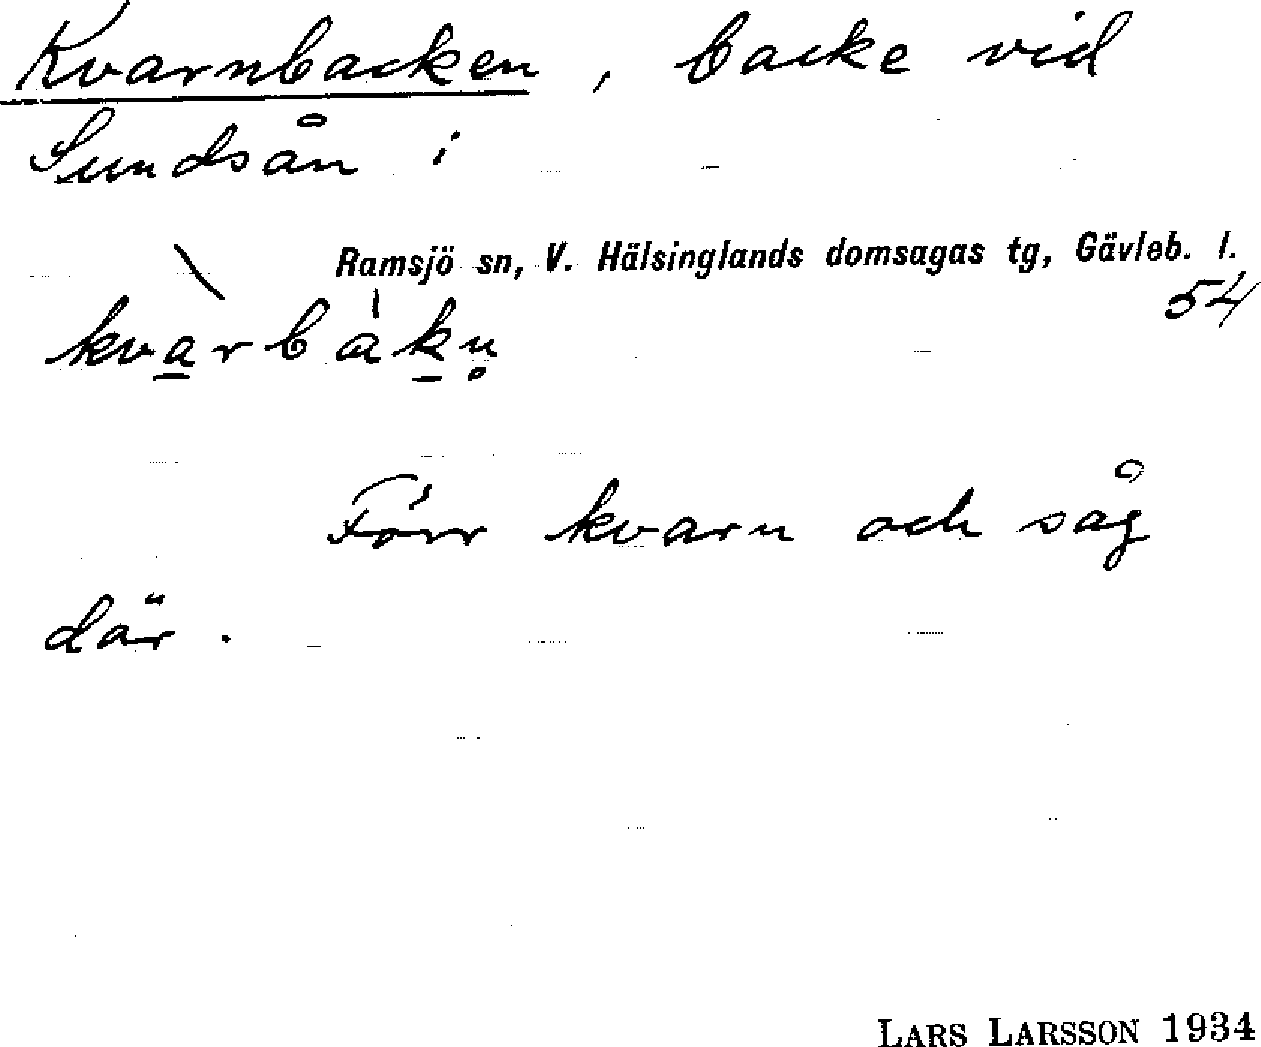 Kvarnbacken, backe vid
Sundsån i
Ramsjö sn, V. Hälsinglands domsagas tg, Gävleb. l.
54
kvàrbákn̥
Förr kvarn och såg
där.
LARS LARSSON 1934